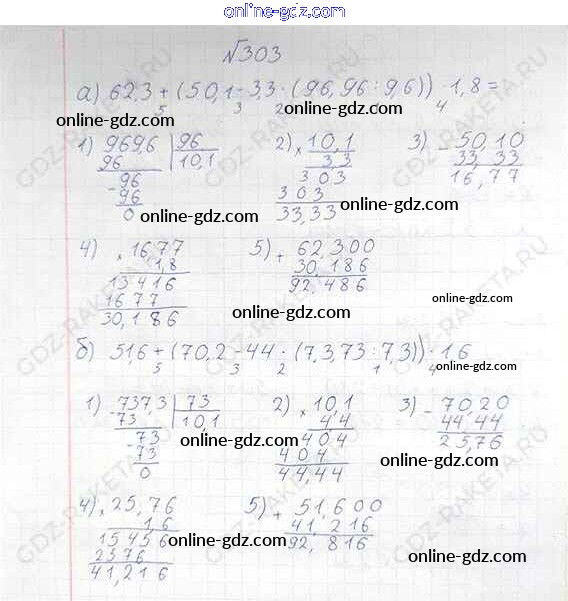 online-gdz.com
№303
а) 62,3 + (50,1 - 3,3 · (96,96 : 96)) · 1,8 =
5 3 2 4
online-gdz.com online-gdz.com
1) 9696 | 96 2) × 10,1 3) - 50,10
96 10,1 3 3 33,33
- 96 3 0 3 16,77
96 3 0 3
0 33,33
online-gdz.com online-gdz.com
4) × 16,77 5) + 62,300
1,8 30,186
13416 92,486
1677
30,186
online-gdz.com online-gdz.com
б) 51,6 + (70,2 - 44 · (7,3,73 : 7,3)) · 1,6
5 3 2 1 4
1) - 737,3 | 73 2) × 10,1 3) - 70,20
73 10,1 4,4 44,44
- 73 4 0 4 25,76
73 4 0 4
0 44,44
online-gdz.com online-gdz.com
4) × 25,76 5) + 51,600
1,6 41,216
15456 92,816
2576
41,216
online-gdz.com online-gdz.com
GDZ-RAKETA.RU